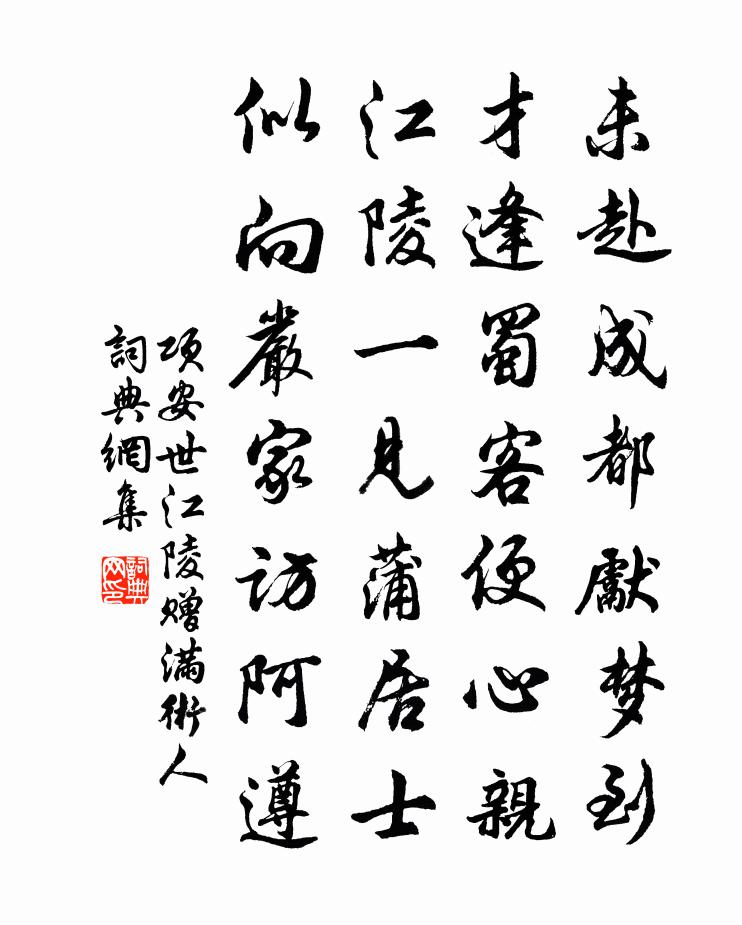 未赴成都獻梦到
才逢蜀客便心親
江陵一見蒲居士
似向嚴家訪阿遵
項安世江陵赠滿術人
詞典網集
詞典網印